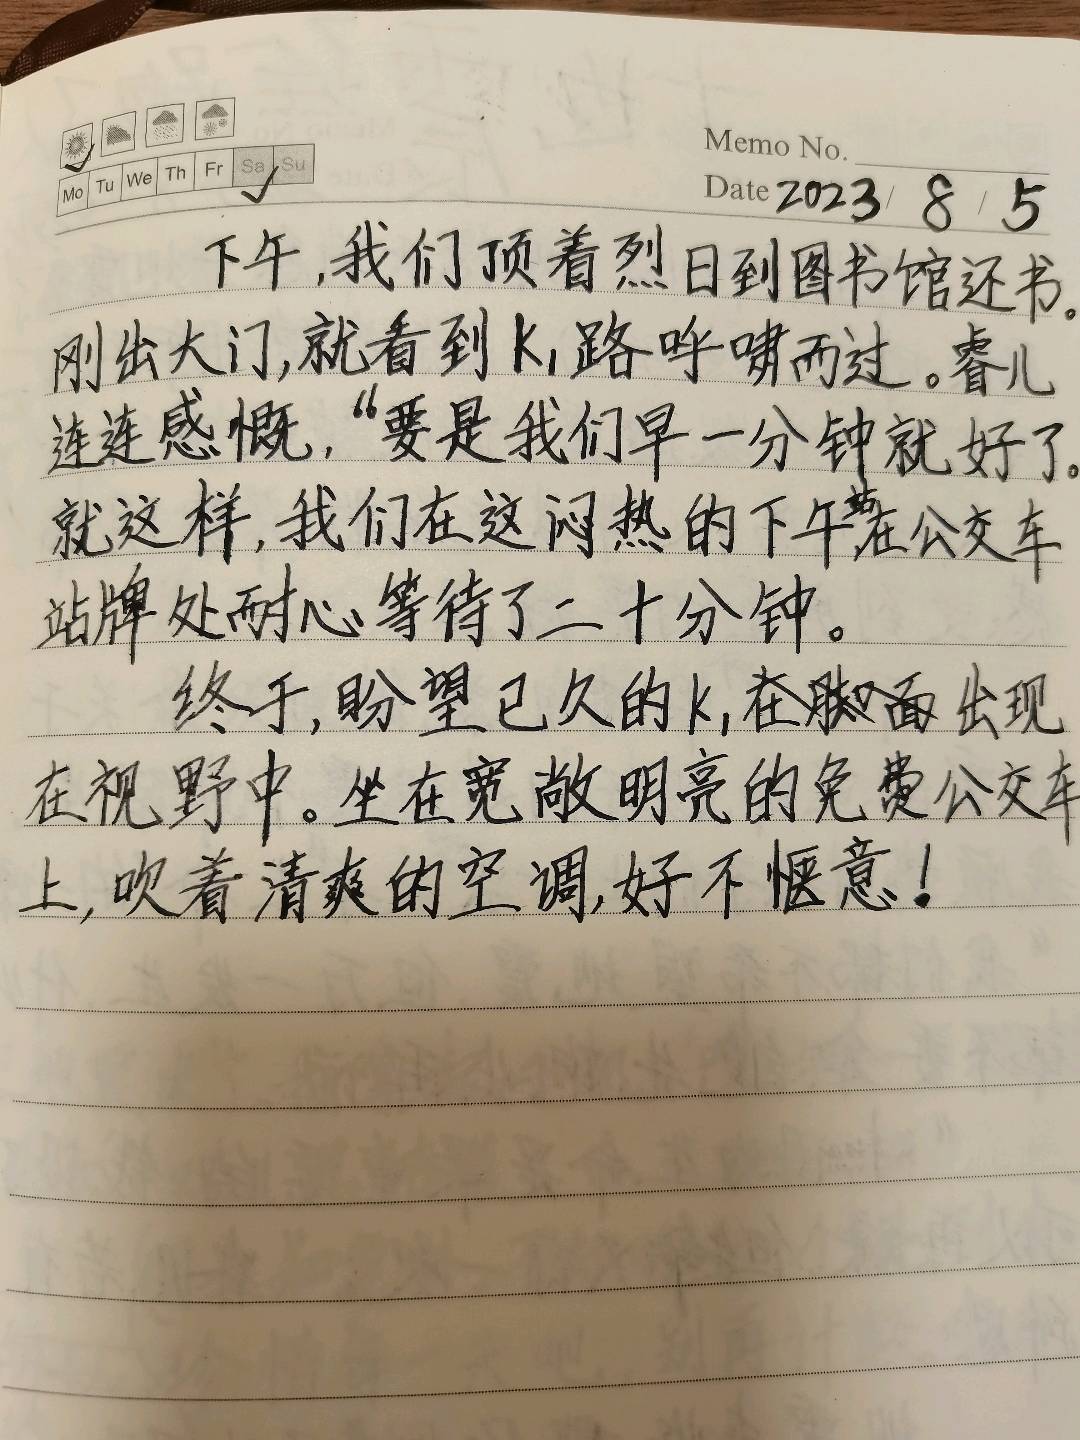 Memo No.
Mo Tu We Th Fr Sa Su
Date 2023/ 8 / 5
下午,我们顶着烈日到图书馆还书。
刚出大门,就看到K1路呼啸而过。睿儿
连连感慨,“要是我们早一分钟就好了。
就这样,我们在这闷热的下午,在公交车
站牌处耐心等待了二十分钟。
终于,盼望已久的K1在面出现
在视野中。坐在宽敞明亮的免费公交车
上,吹着清爽的空调,好不惬意!